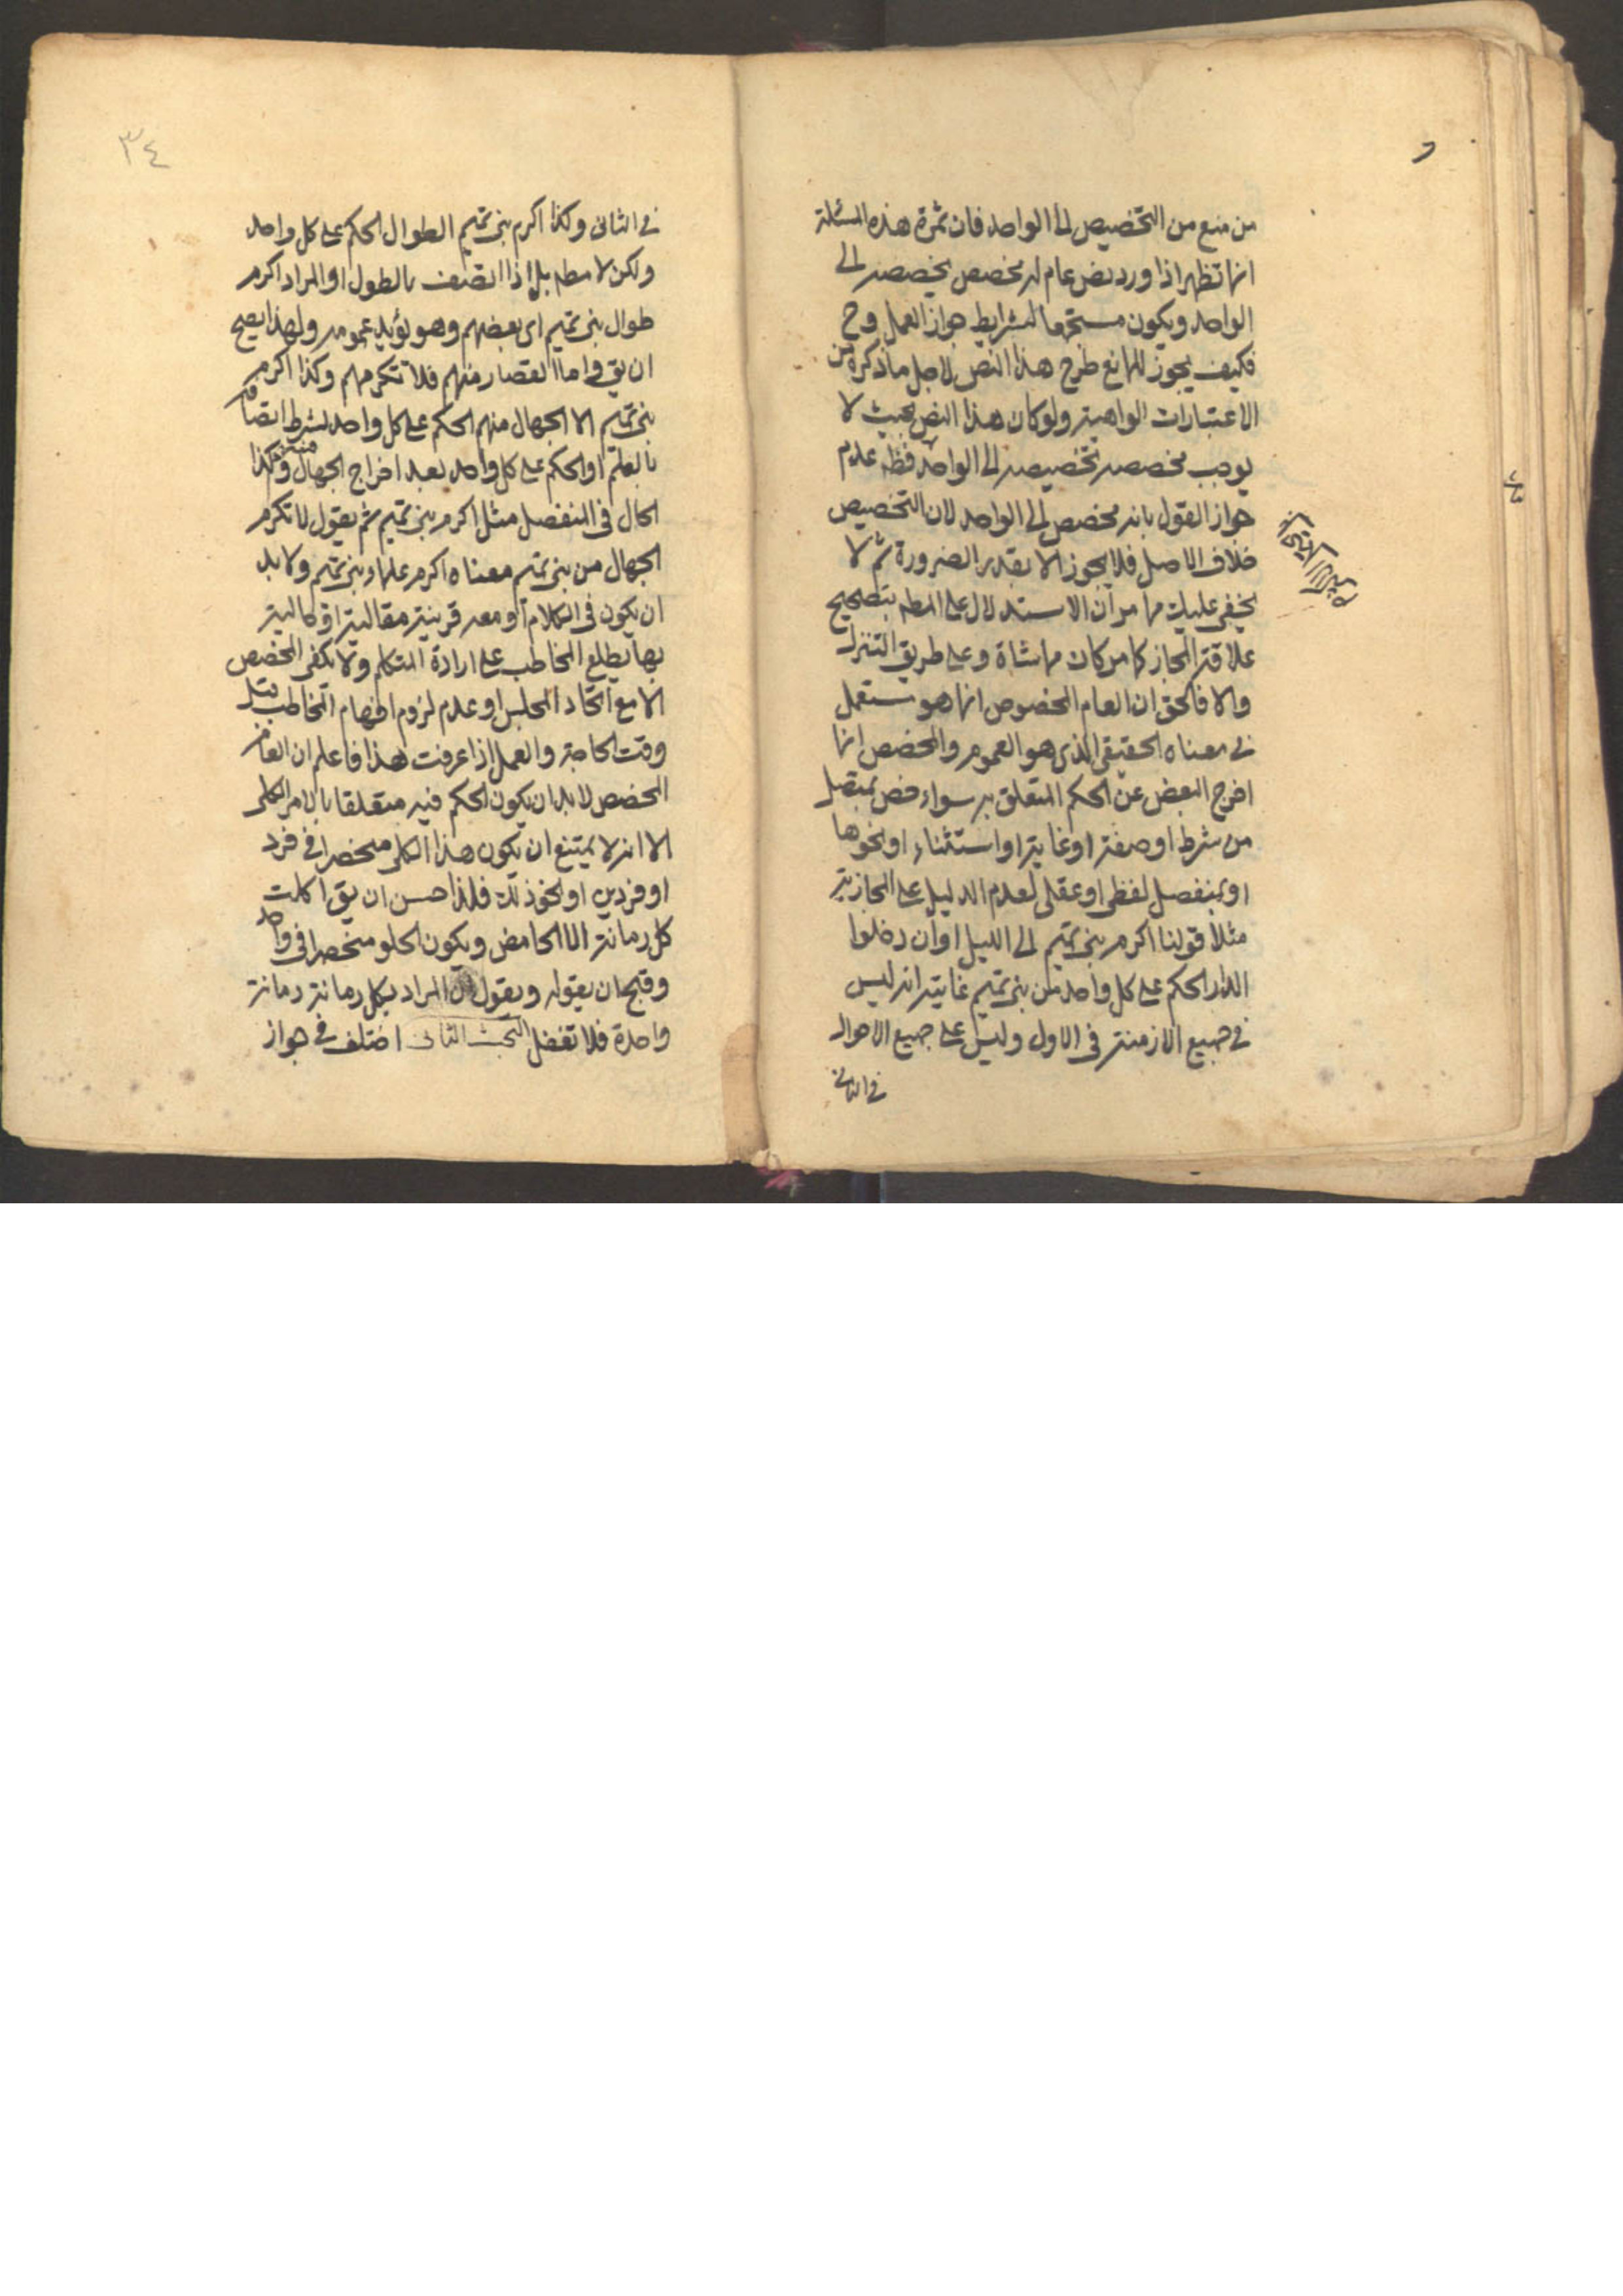 من منع من التخصيص الى الواحد فان ثمرة هذه المسئلة
انما تظهر اذا ورد نص عام له مخصص يخصصه الى
الواحد ويكون مستجمعا لشرايط جواز العمل وح
فكيف يجوز للمانع طرح هذا النص لاجل ما ذكره من
الاعتبارات الواهية ولو كان هذا النص بحيث لا
يوجب مخصصه تخصيصه الى الواحد فظه عدم
جواز القول بانه مخصص الى الواحد لان التخصيص
خلاف الاصل فلا يجوز الا بقدر الضرورة ثم لا
يخفى عليك مما مر ان الاستدلال على المطه بتصحيح
علاقة المجاز كما مر كان مماشاة وعلى طريق التنزل
والا فالحق ان العام المخصوص انما هو مستعمل
في معناه الحقيقي الذي هو العموم والمخصص انما
اخرج البعض عن الحكم المتعلق به سواء خص بمتصل
من شرط او صفة او غاية او استثناء او نحوها
او بمنفصل لفظي او عقلي لعدم الدليل على المجازية
مثلا قولنا اكرم بني تميم الى الليل او ان دخلوا
الدار الحكم على كل واحد من بني تميم غايته انه ليس
في جميع الازمنة في الاول وليس على جميع الاحوال
في الثاني
٣٤
في الثاني وكذا اكرم بني تميم الطوال الحكم على كل واحد
ولكن لا مطه بل اذا اتصف بالطول او المراد اكرم
طوال بني تميم اى بعضهم وهو يؤيد عمومه ولهذا يصح
ان يق واما القصار منهم فلا تكرمهم وكذا اكرم
بني تميم الا الجهال منهم الحكم على كل واحد بشرط اتصافه
بالعلم او الحكم على كل واحد بعد اخراج الجهال منهم وكذا
الحال في المنفصل مثل اكرم بني تميم ثم يقول لا تكرم
الجهال من بني تميم معناه اكرم علماء بني تميم ولا بد
ان يكون في الكلام او معه قرينة مقالية او حالية
بها يطلع المخاطب على ارادة المتكلم ولا يكفى المخصص
الا مع اتحاد المجلس او عدم لزوم افهام المخاطب قبل
وقت الحاجة والعمل اذا عرفت هذا فاعلم ان العام
المخصص لا بد ان يكون الحكم فيه متعلقا بالامر الكلى
الا انه لا يمتنع ان يكون هذا الكلى منحصرا في فرد
او فردين او نحو ذلك فلذا حسن ان يق اكلت
كل رمانة الا الحامض ويكون الحلو منحصرا في واحد
وقبح ان يقوله ويقول المراد بكل رمانة رمانة
واحدة فلا تغفل البحث الثانى اختلف في جواز